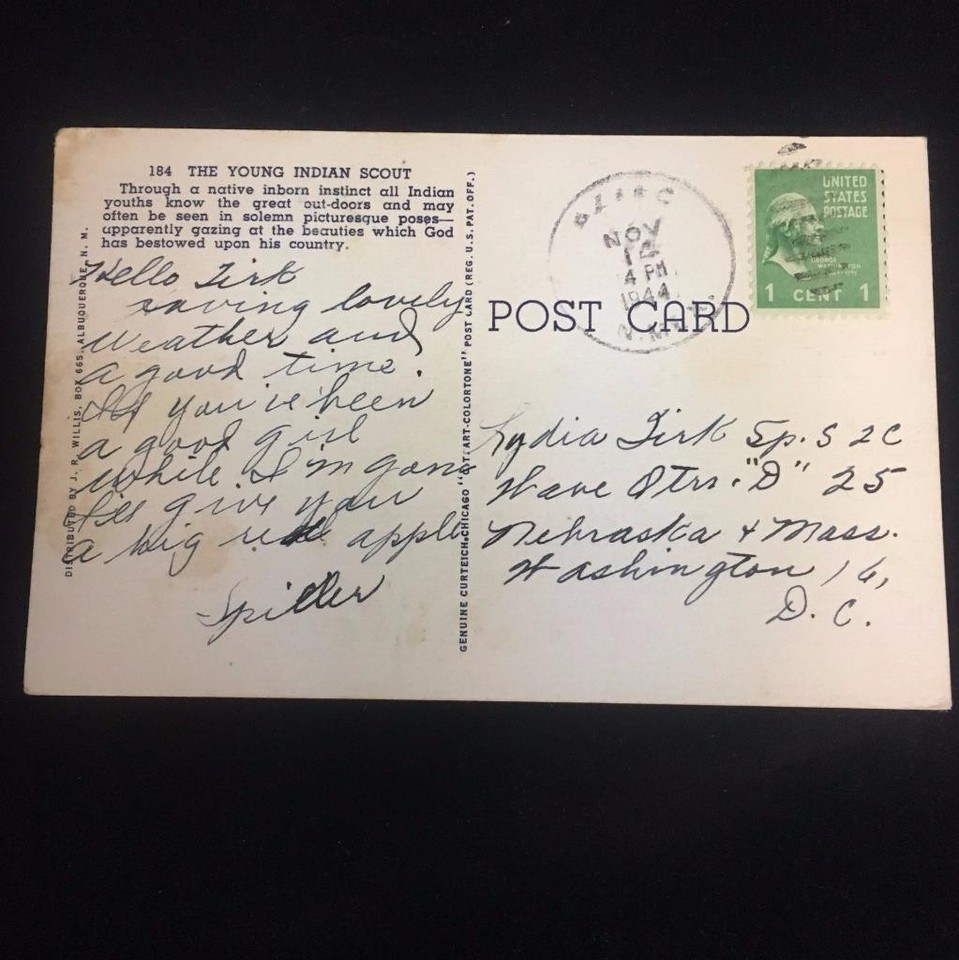 184 THE YOUNG INDIAN SCOUT
Through a native inborn instinct all Indian
youths know the great out-doors and may
often be seen in solemn picturesque poses—
apparently gazing at the beauties which God
has bestowed upon his country.
Hello Tirk
Having lovely
weather and
a good time.
If you've been
a good girl
while I'm gone
I'll give you
a big red apple
Spiller
DISTRIBUTED BY J. R. WILLIS, BOX 665, ALBUQUERQUE, N. M.
GENUINE CURTEICH-CHICAGO "C.T. ART-COLORTONE" POST CARD (REG. U.S. PAT. OFF.)
POST CARD
AZTEC
NOV
14
4 PM
1944
N. MEX.
UNITED
STATES
POSTAGE
GEORGE
WASHINGTON
1 CENT 1
Lydia Tirk Sp. S 2C
Wave Qtrs. "D" 25
Nebraska & Mass.
Washington 16,
D. C.